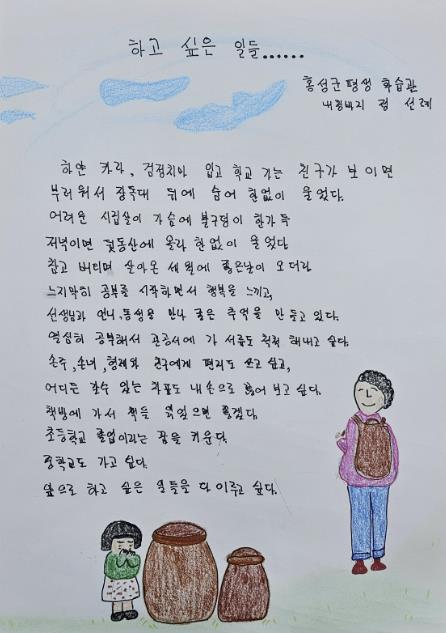 하고 싶은 일들......
홍성군 평생 학습관
선례
하얀 카라, 검정치마 입고 학교 가는 친구가 보이면
부러워서 장독대 뒤에 숨어 한없이 울었다.
어려운 시집살이 가슴에 불구덩이 한가득
저녁이면 뒷동산에 올라 한없이 울었다
참고 버티며 살아온 세월에 좋은날이 오더라
느지막히 공부를 시작하면서 행복을 느끼고,
선생님과 언니, 동생을 만나 좋은 추억을 만들고 있다.
열심히 공부해서 관공서에 가 서류도 척척 해내고 싶다.
손주, 손녀, 형제와 친구에게 편지도 쓰고 싶고,
어디든 갈수 있는 차표도 내 손으로 끊어 보고 싶다.
책방에 가서 책을 읽으면 좋겠다.
초등학교 졸업이라는 꿈을 키운다.
중학교도 가고 싶다.
앞으로 하고 싶은 일들을 다 이루고 싶다.